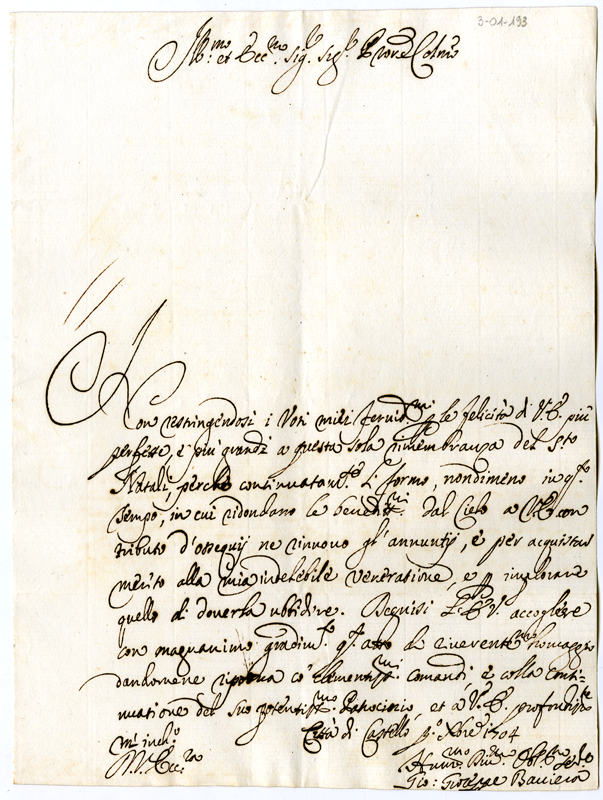 3-01-193
Ill:mo et Ecc:mo Sig:r Sig:r Prone Colmo
Non restringendosi i Voti miei feruid:mi p le felicità di V.E. più
perfette, e più grandi a questa sola rimembranza del S:to
Natale, perche continuatam:te l. formo, nondimeno in q:to
tempo, in cui ridondano le benedit:ni dal Cielo a V.E. con
tributo d'ossequij ne rinuouo gl'annuntij, e per acquistar
merito alla mia indelebile veneratione, e p implorare
quello di douerla ubbidire. Degnisi L'E.V. accogliere
con magnanimo gradim:to q:to atto di riuerent:mo homaggio
dandomene riproua co' clementiss:mi comandi e colla conti-
nuatione del suo potentiss:mo Patrocinio, et a V.E. profondiss:te
m'inch:o Città di Castello p:o Xbre 1704
D.V. Ecc:za
Hum:mo Diu:mo Obl:mo Ser:re
Gio: Gioseppe